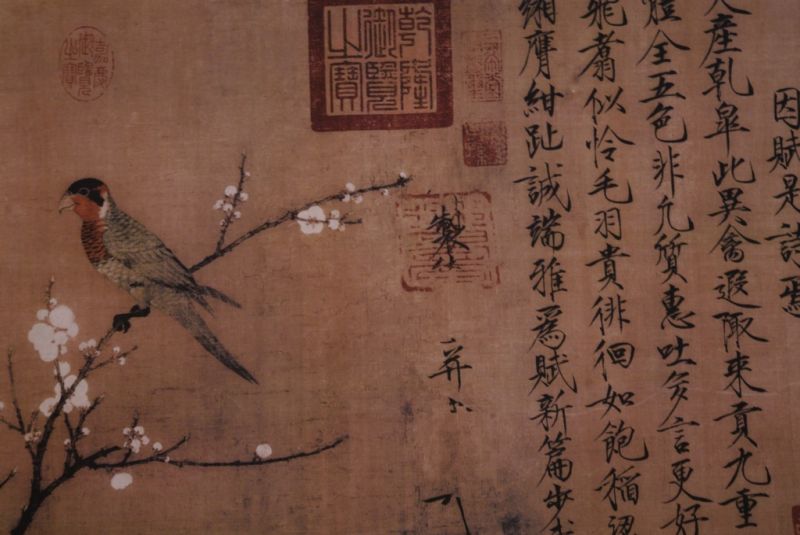 因賦是詩焉
天產乾皋此異禽遐陬來貢九重
體全五色非凡質惠吐多言更好
飛翥似怜毛羽貴徘徊如飽稻
緗膺紺趾誠端雅爲賦新篇步
製
并
乾隆御覽之寶
嘉慶御覽之寶